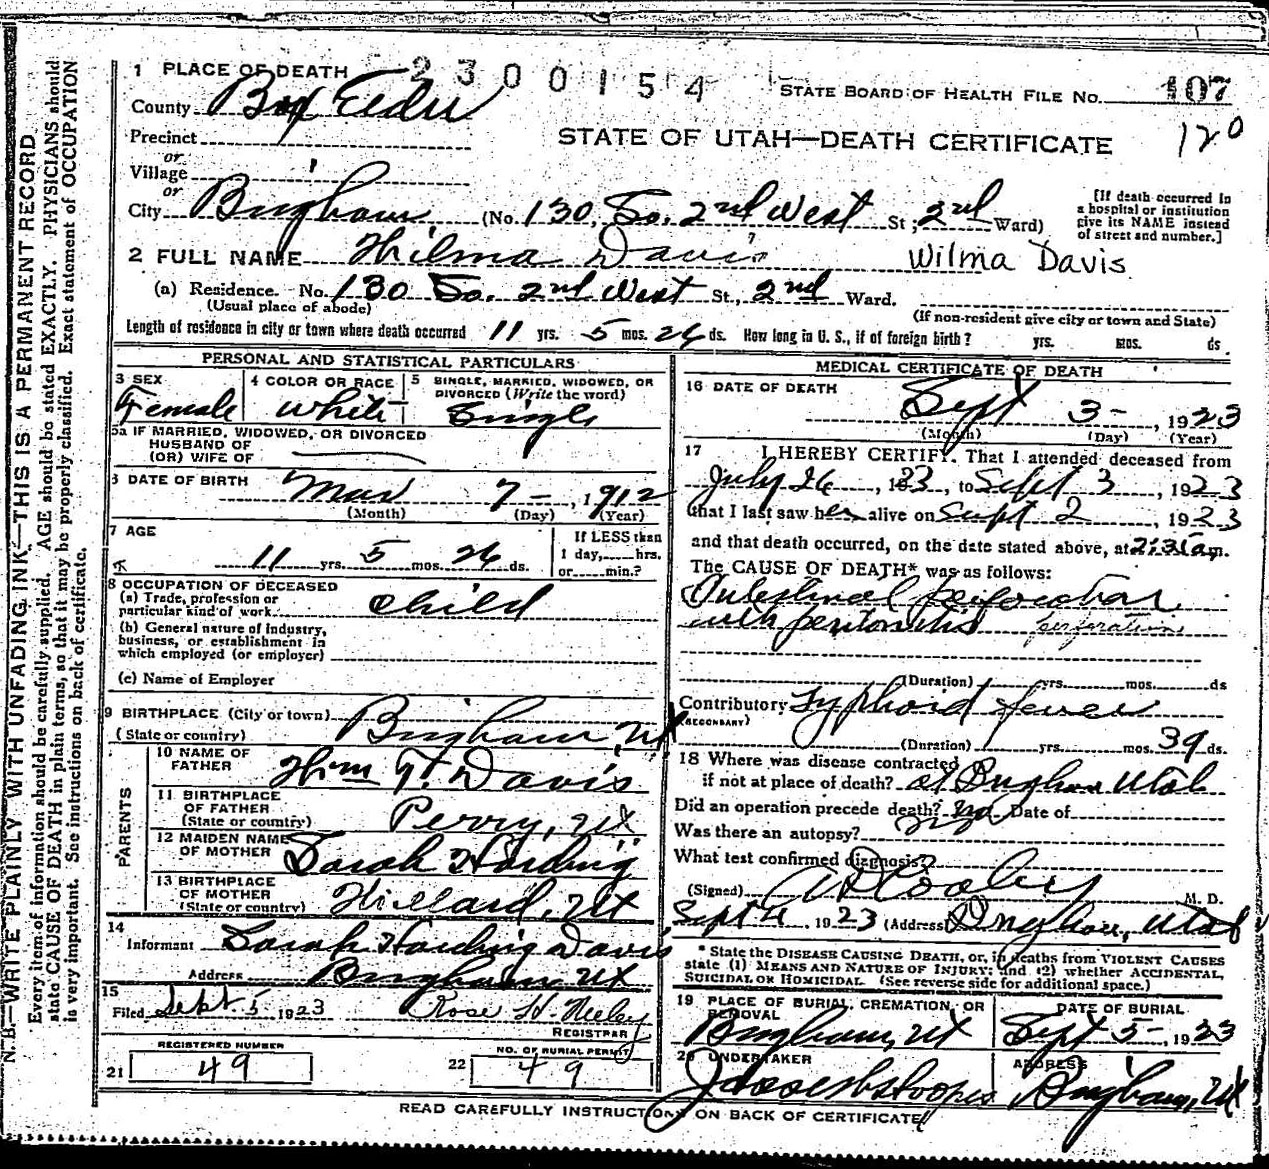 N.B.—WRITE PLANLY WITH UNFADING INK—THIS IS A PERMANENT RECORD
Every item of information should be carefully supplied. AGE should be stated EXACTLY. PHYSICIANS should
state CAUSE OF DEATH in plain terms, so that it may be properly classified. Exact statement of OCCUPATION
is very important. See instructions on back of certificate.
2300154
1 PLACE OF DEATH
STATE BOARD OF HEALTH FILE No. 107
County Box Elder
120
STATE OF UTAH—DEATH CERTIFICATE
Precinct
or
Village
or
City Brigham (No. 130, So. 2nd West St; 2nd Ward)
[If death occurred in
a hospital or institution
give its NAME instead
of street and number.]
2 FULL NAME Wilma Davis Wilma Davis
(a) Residence. No. 130 So. 2nd West St., 2nd Ward.
(Usual place of abode)
(If non-resident give city or town and State)
Length of residence in city or town where death occurred 11 yrs. 5 mos. 26 ds. How long in U. S., if of foreign birth? yrs. mos. ds.
PERSONAL AND STATISTICAL PARTICULARS
3 SEX Female
4 COLOR OR RACE white
5 SINGLE, MARRIED, WIDOWED, OR
DIVORCED (Write the word)
Single
5a IF MARRIED, WIDOWED, OR DIVORCED
HUSBAND OF
(OR) WIFE OF
6 DATE OF BIRTH Mar 7- , 1912
(Month) (Day) (Year)
7 AGE
11 yrs. 5 mos. 26 ds.
If LESS than
1 day, hrs.
or min.?
8 OCCUPATION OF DECEASED
(a) Trade, profession or
particular kind of work child
(b) General nature of industry,
business, or establishment in
which employed (or employer)
(c) Name of Employer
9 BIRTHPLACE (City or town)
(State or country) Brigham, Ut
PARENTS
10 NAME OF
FATHER Wm T. Davis
11 BIRTHPLACE
OF FATHER
(State or country) Perry, Ut
12 MAIDEN NAME
OF MOTHER Sarah Harding
13 BIRTHPLACE
OF MOTHER
(State or country) Willard, Ut
14
Informant Sarah Harding Davis
Address Brigham Ut
15
Filed Sept. 5 1923 Rose H.
REGISTRAR
REGISTERED NUMBER
21 49
NO. OF BURIAL PERMIT
22 49
MEDICAL CERTIFICATE OF DEATH
16 DATE OF DEATH
Sept 3- , 1923
(Month) (Day) (Year)
17 I HEREBY CERTIFY. That I attended deceased from
July 26 , 1923, to Sept 3 , 1923
that I last saw her alive on Sept 2 1923
and that death occurred, on the date stated above, at m.
The CAUSE OF DEATH* was as follows:
Intestinal perforation
with peritonitis perforation
(Duration) yrs. mos. ds
Contributory Typhoid fever
(SECONDARY)
(Duration) yrs. mos. 39 ds.
18 Where was disease contracted
if not at place of death? at Brigham Utah
Did an operation precede death? no Date of
Was there an autopsy? no
What test confirmed diagnosis?
(Signed) A D Cooley M. D.
Sept 4, 1923 (Address) Brigham, Utah
* State the DISEASE CAUSING DEATH, or, in deaths from VIOLENT CAUSES
state (1) MEANS AND NATURE OF INJURY; and (2) whether ACCIDENTAL,
SUICIDAL OR HOMICIDAL. (See reverse side for additional space.)
19 PLACE OF BURIAL, CREMATION, OR
REMOVAL
Brigham, Ut
DATE OF BURIAL
Sept 5- , 1923
20 UNDERTAKER
ADDRESS
Brigham, Ut
READ CAREFULLY INSTRUCTIONS ON BACK OF CERTIFICATE